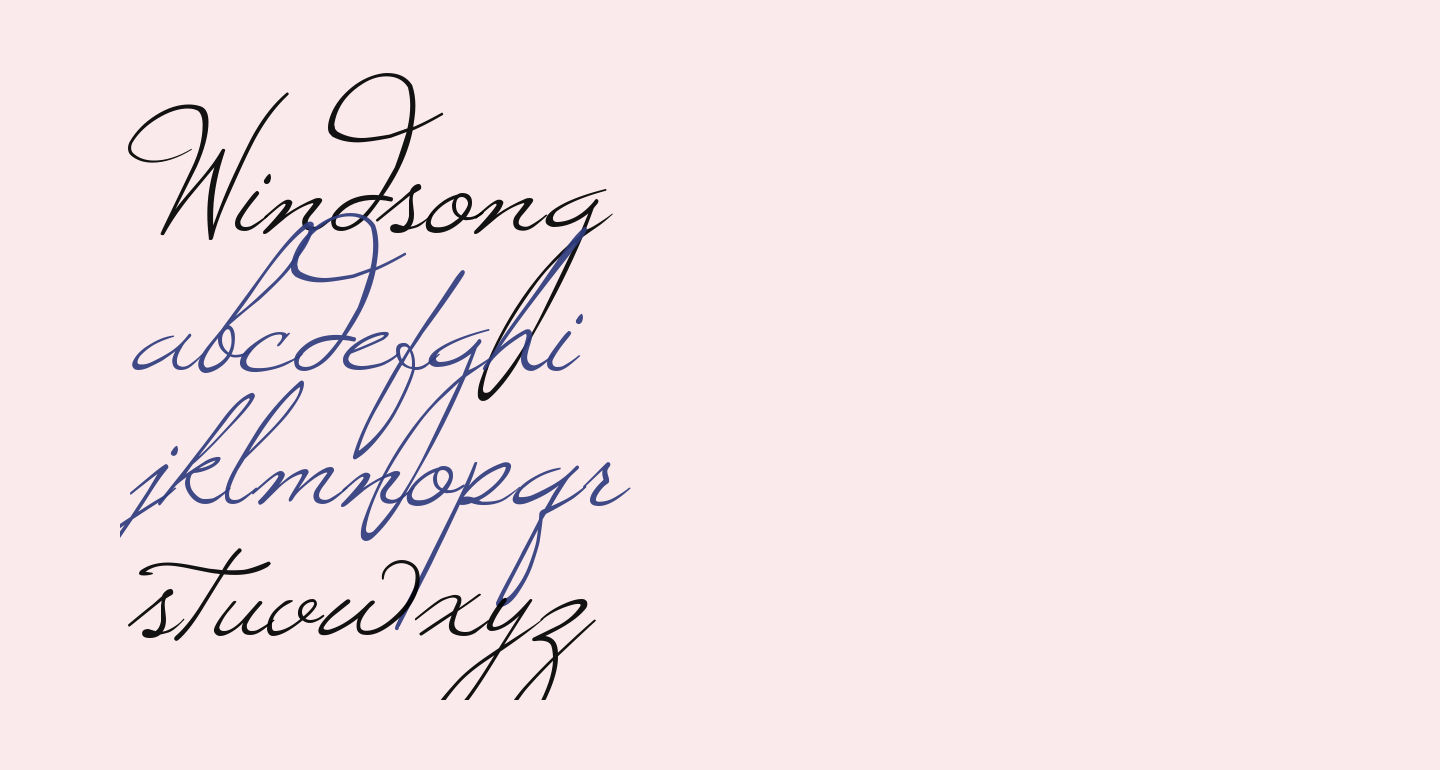 Windsong
abcdefghi
jklmnopqr
stuvwxyz